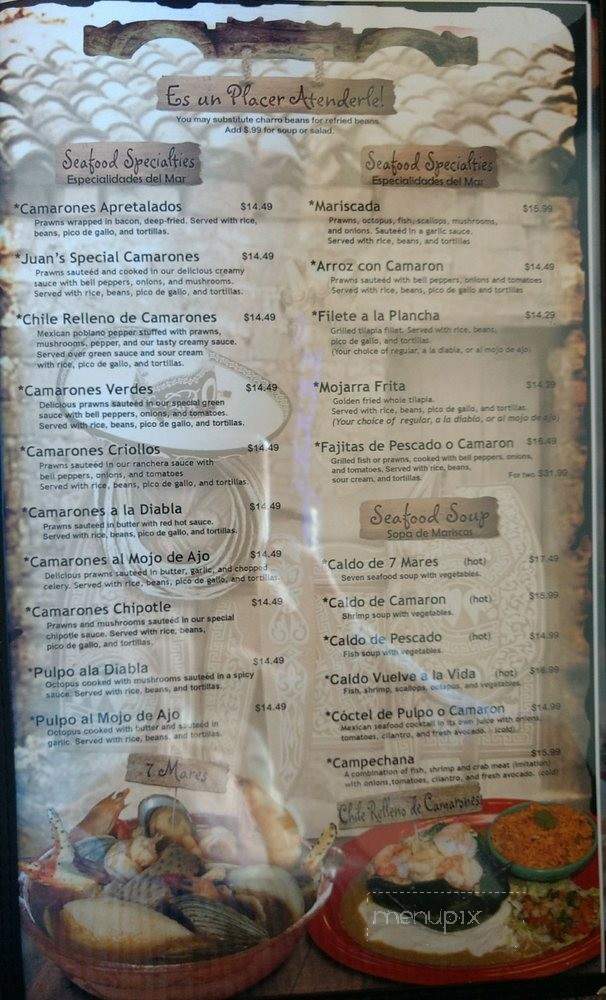 Es un Placer Atenderle!
You may substitute charro beans for refried beans.
Add $.99 for soup or salad.
Seafood Specialties
Especialidades del Mar
*Camarones Apretalados $14.49
Prawns wrapped in bacon, deep-fried. Served with rice,
beans, pico de gallo, and tortillas.
*Juan's Special Camarones $14.49
Prawns sauteéd and cooked in our delicious creamy
sauce with bell peppers, onions, and mushrooms.
Served with rice, beans, pico de gallo, and tortillas.
*Chile Relleno de Camarones $14.49
Mexican poblano pepper stuffed with prawns,
mushrooms, pepper, and our tasty creamy sauce.
Served over green sauce and sour cream
with rice, pico de gallo, and tortillas.
*Camarones Verdes $14.49
Delicious prawns sauteéd in our special green
sauce with bell peppers, onions, and tomatoes.
Served with rice, beans, pico de gallo, and tortillas.
*Camarones Criollos $14.49
Prawns sauteéd in our ranchera sauce with
bell peppers, onions, and tomatoes
Served with rice, beans, pico de gallo, and tortillas.
*Camarones a la Diabla $14.49
Prawns sauteéd in butter with red hot sauce.
Served with rice, beans, pico de gallo, and tortillas.
*Camarones al Mojo de Ajo $14.49
Delicious prawns sauteéd in butter, garlic, and chopped
celery. Served with rice, beans, pico de gallo, and tortillas.
*Camarones Chipotle $14.49
Prawns and mushrooms sauteéd in our special
chipotle sauce. Served with rice, beans,
pico de gallo, and tortillas.
*Pulpo ala Diabla $14.49
Octopus cooked with mushrooms sauteéd in a spicy
sauce. Served with rice, beans, and tortillas.
*Pulpo al Mojo de Ajo $14.49
Octopus cooked with butter and sauteéd in
garlic. Served with rice, beans, and tortillas.
7 Mares
Seafood Specialties
Especialidades del Mar
*Mariscada $15.99
Prawns, octopus, fish, scallops, mushrooms,
and onions. Sauteéd in a garlic sauce.
Served with rice, beans, and tortillas
*Arroz con Camaron $14.49
Prawns sauteéd with bell peppers, onions and tomatoes
Served with rice, beans, pico de gallo and tortillas
*Filete a la Plancha $14.29
Grilled tilapia fillet. Served with rice, beans,
pico de gallo, and tortillas.
(Your choice of regular, a la diabla, or al mojo de ajo)
*Mojarra Frita
Golden fried whole tilapia.
Served with rice, beans, pico de gallo, and tortillas.
(Your choice of regular, a la diabla, or al mojo de ajo)
*Fajitas de Pescado o Camaron $16.49
Grilled fish or prawns, cooked with bell peppers, onions,
and tomatoes. Served with rice, beans,
sour cream, and tortillas. For two $31.99
Seafood Soup
Sopa de Mariscos
*Caldo de 7 Mares (hot) $17.49
Seven seafood soup with vegetables.
*Caldo de Camaron (hot) $15.99
Shrimp soup with vegetables.
*Caldo de Pescado (hot) $14.99
Fish soup with vegetables.
*Caldo Vuelve a la Vida (hot) $16.99
Fish, shrimp, scallops, octopus, and vegetables.
*Cóctel de Pulpo o Camaron $14.99
Mexican seafood cocktail in its own juice with onions,
tomatoes, cilantro, and fresh avocado. (cold)
*Campechana $15.99
A combination of fish, shrimp and crab meat (imitation)
with onions, tomatoes, cilantro, and fresh avocado. (cold)
Chile Relleno de Camarones
menupix